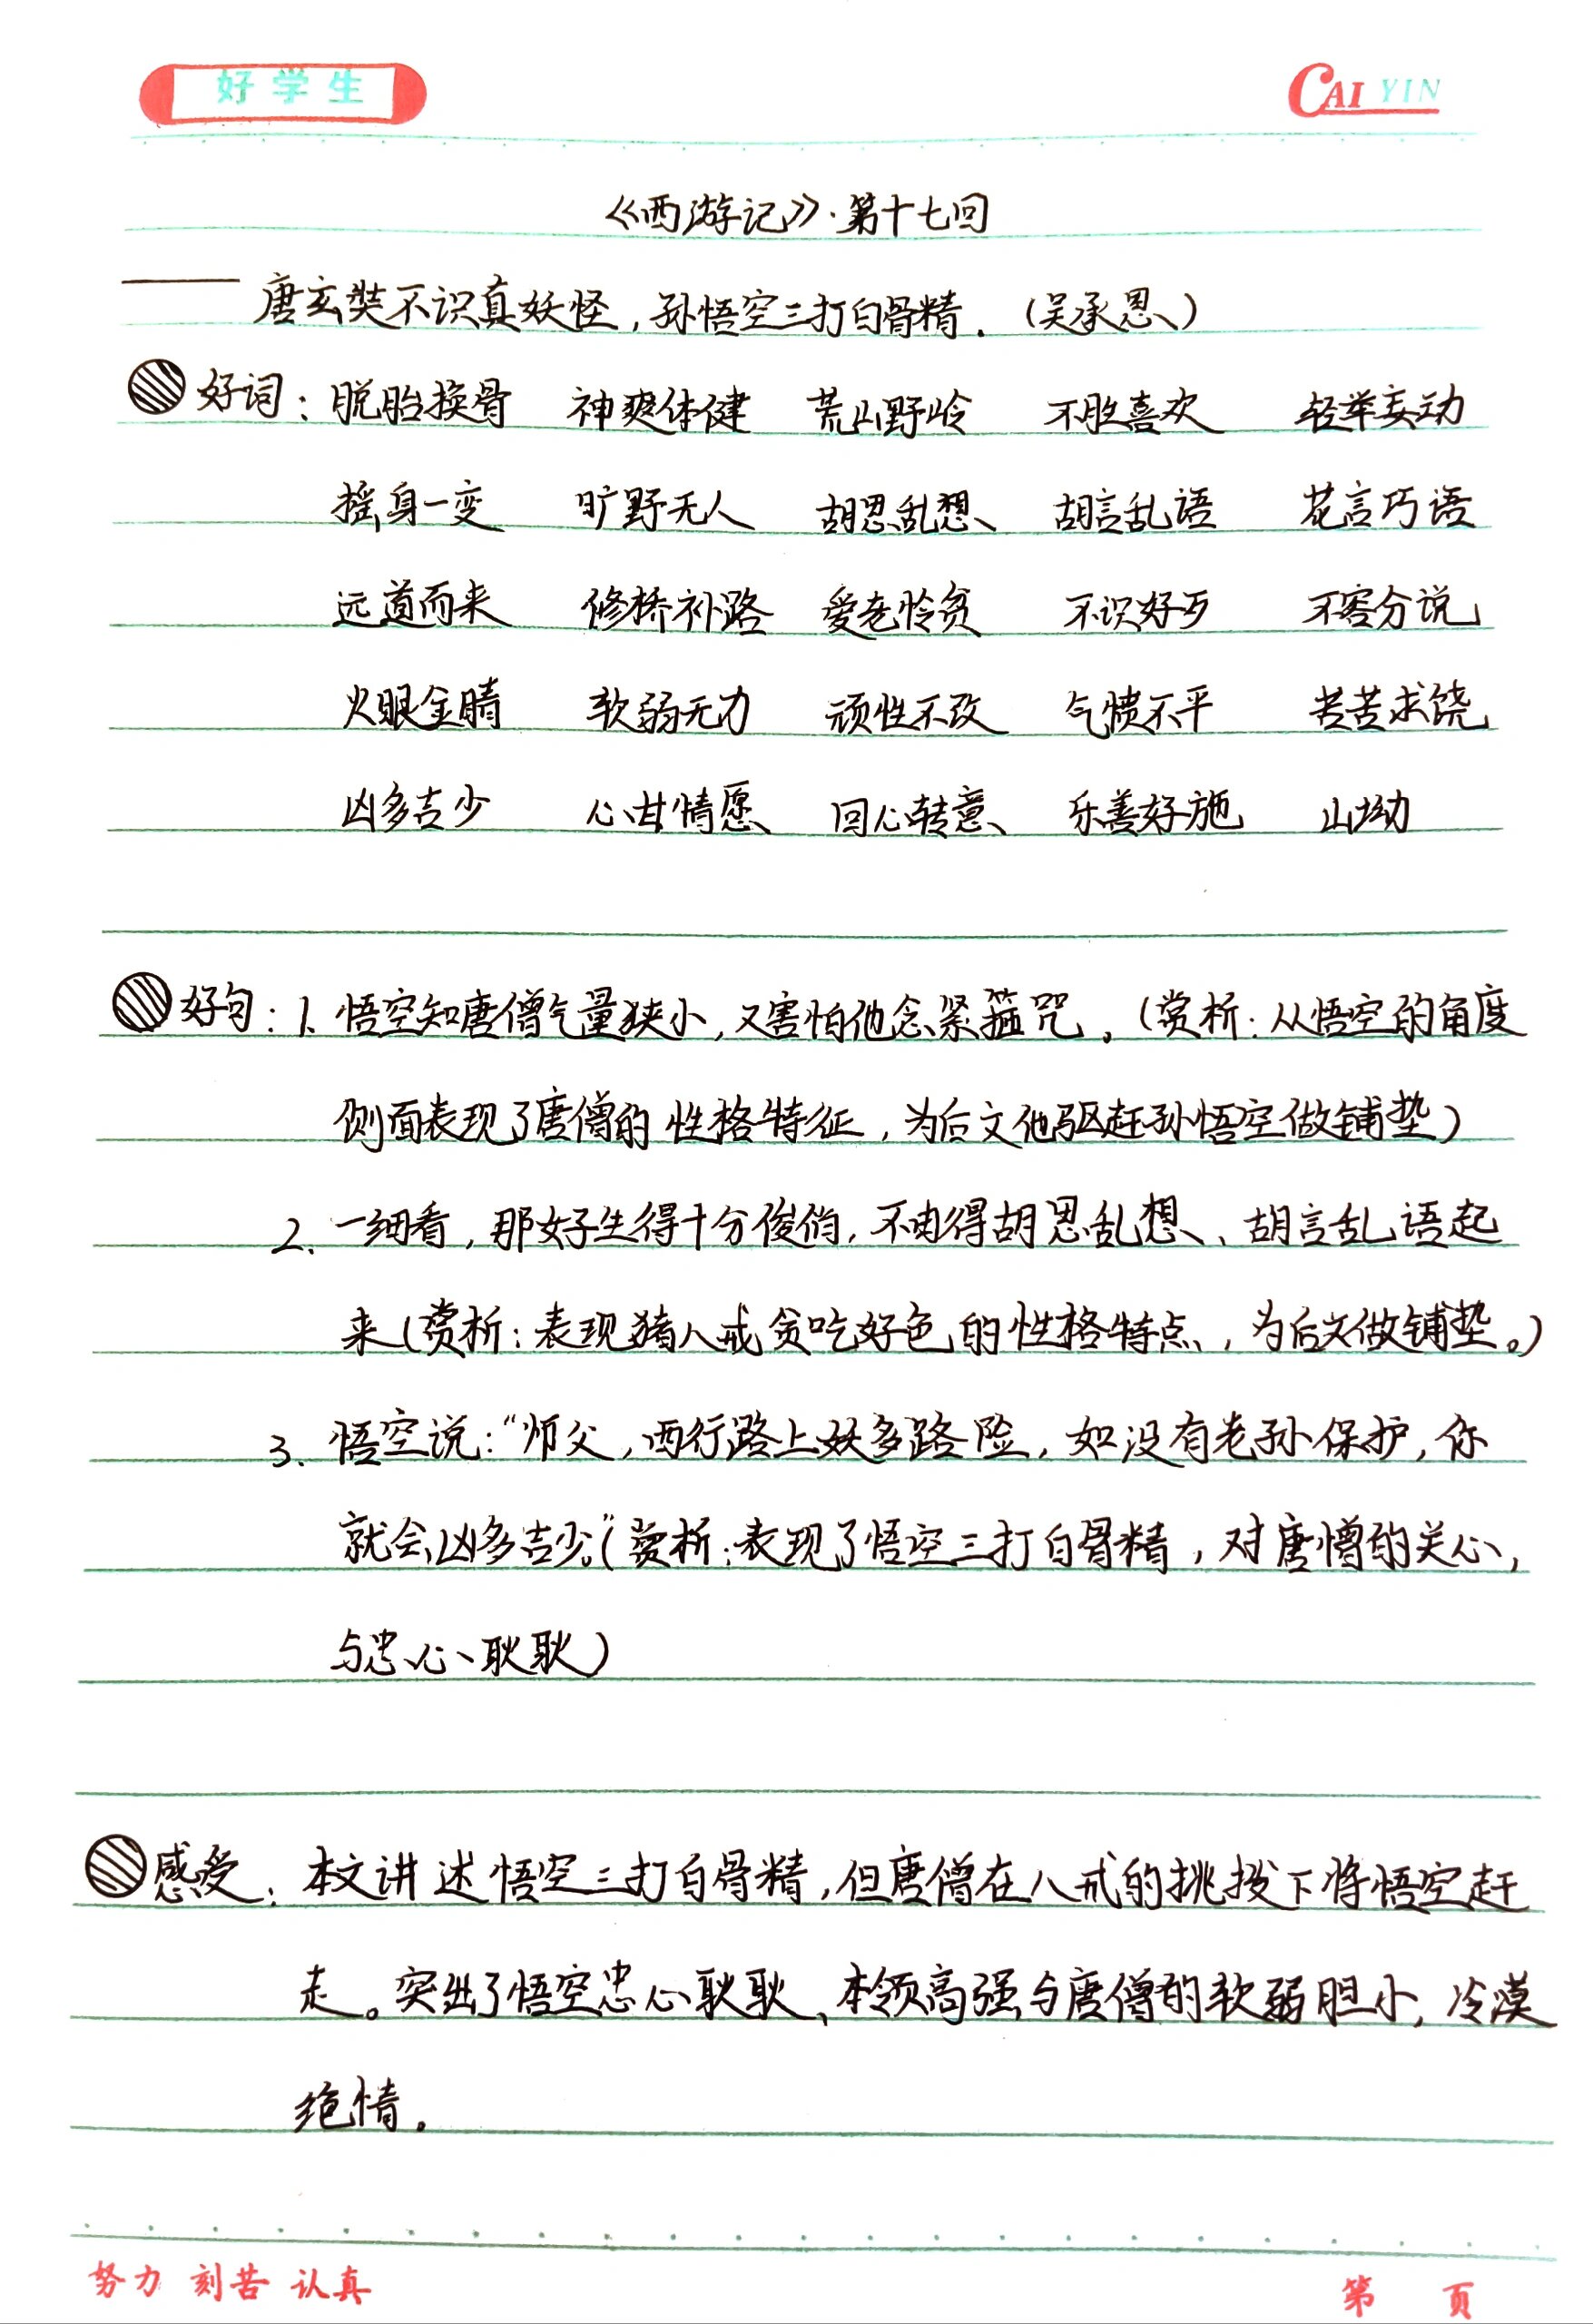 好学生
CAI YIN
《西游记》·第十七回
——唐玄奘不识真妖怪，孙悟空三打白骨精．（吴承恩）
好词：脱胎换骨 神爽体健 荒山野岭 不胜喜欢 轻举妄动
摇身一变 旷野无人 胡思乱想 胡言乱语 花言巧语
远道而来 修桥补路 爱老怜贫 不识好歹 不容分说
火眼金睛 软弱无力 顽性不改 气愤不平 苦苦求饶
凶多吉少 心甘情愿 回心转意 乐善好施 山坳
好句：1、悟空知唐僧气量狭小，又害怕他念紧箍咒。（赏析：从悟空的角度
侧面表现了唐僧的性格特征，为后文他驱赶孙悟空做铺垫）
2、一细看，那女子生得十分俊俏，不由得胡思乱想、胡言乱语起
来（赏析：表现猪八戒贪吃好色的性格特点，为后文做铺垫。）
3、悟空说：“师父，西行路上妖多路险，如没有老孙保护，你
就会凶多吉少。”（赏析：表现了悟空三打白骨精，对唐僧的关心，
与忠心耿耿）
感受：本文讲述悟空三打白骨精，但唐僧在八戒的挑拨下将悟空赶
走。突出了悟空忠心耿耿、本领高强与唐僧的软弱胆小，冷漠
绝情。
努力 刻苦 认真
第 页